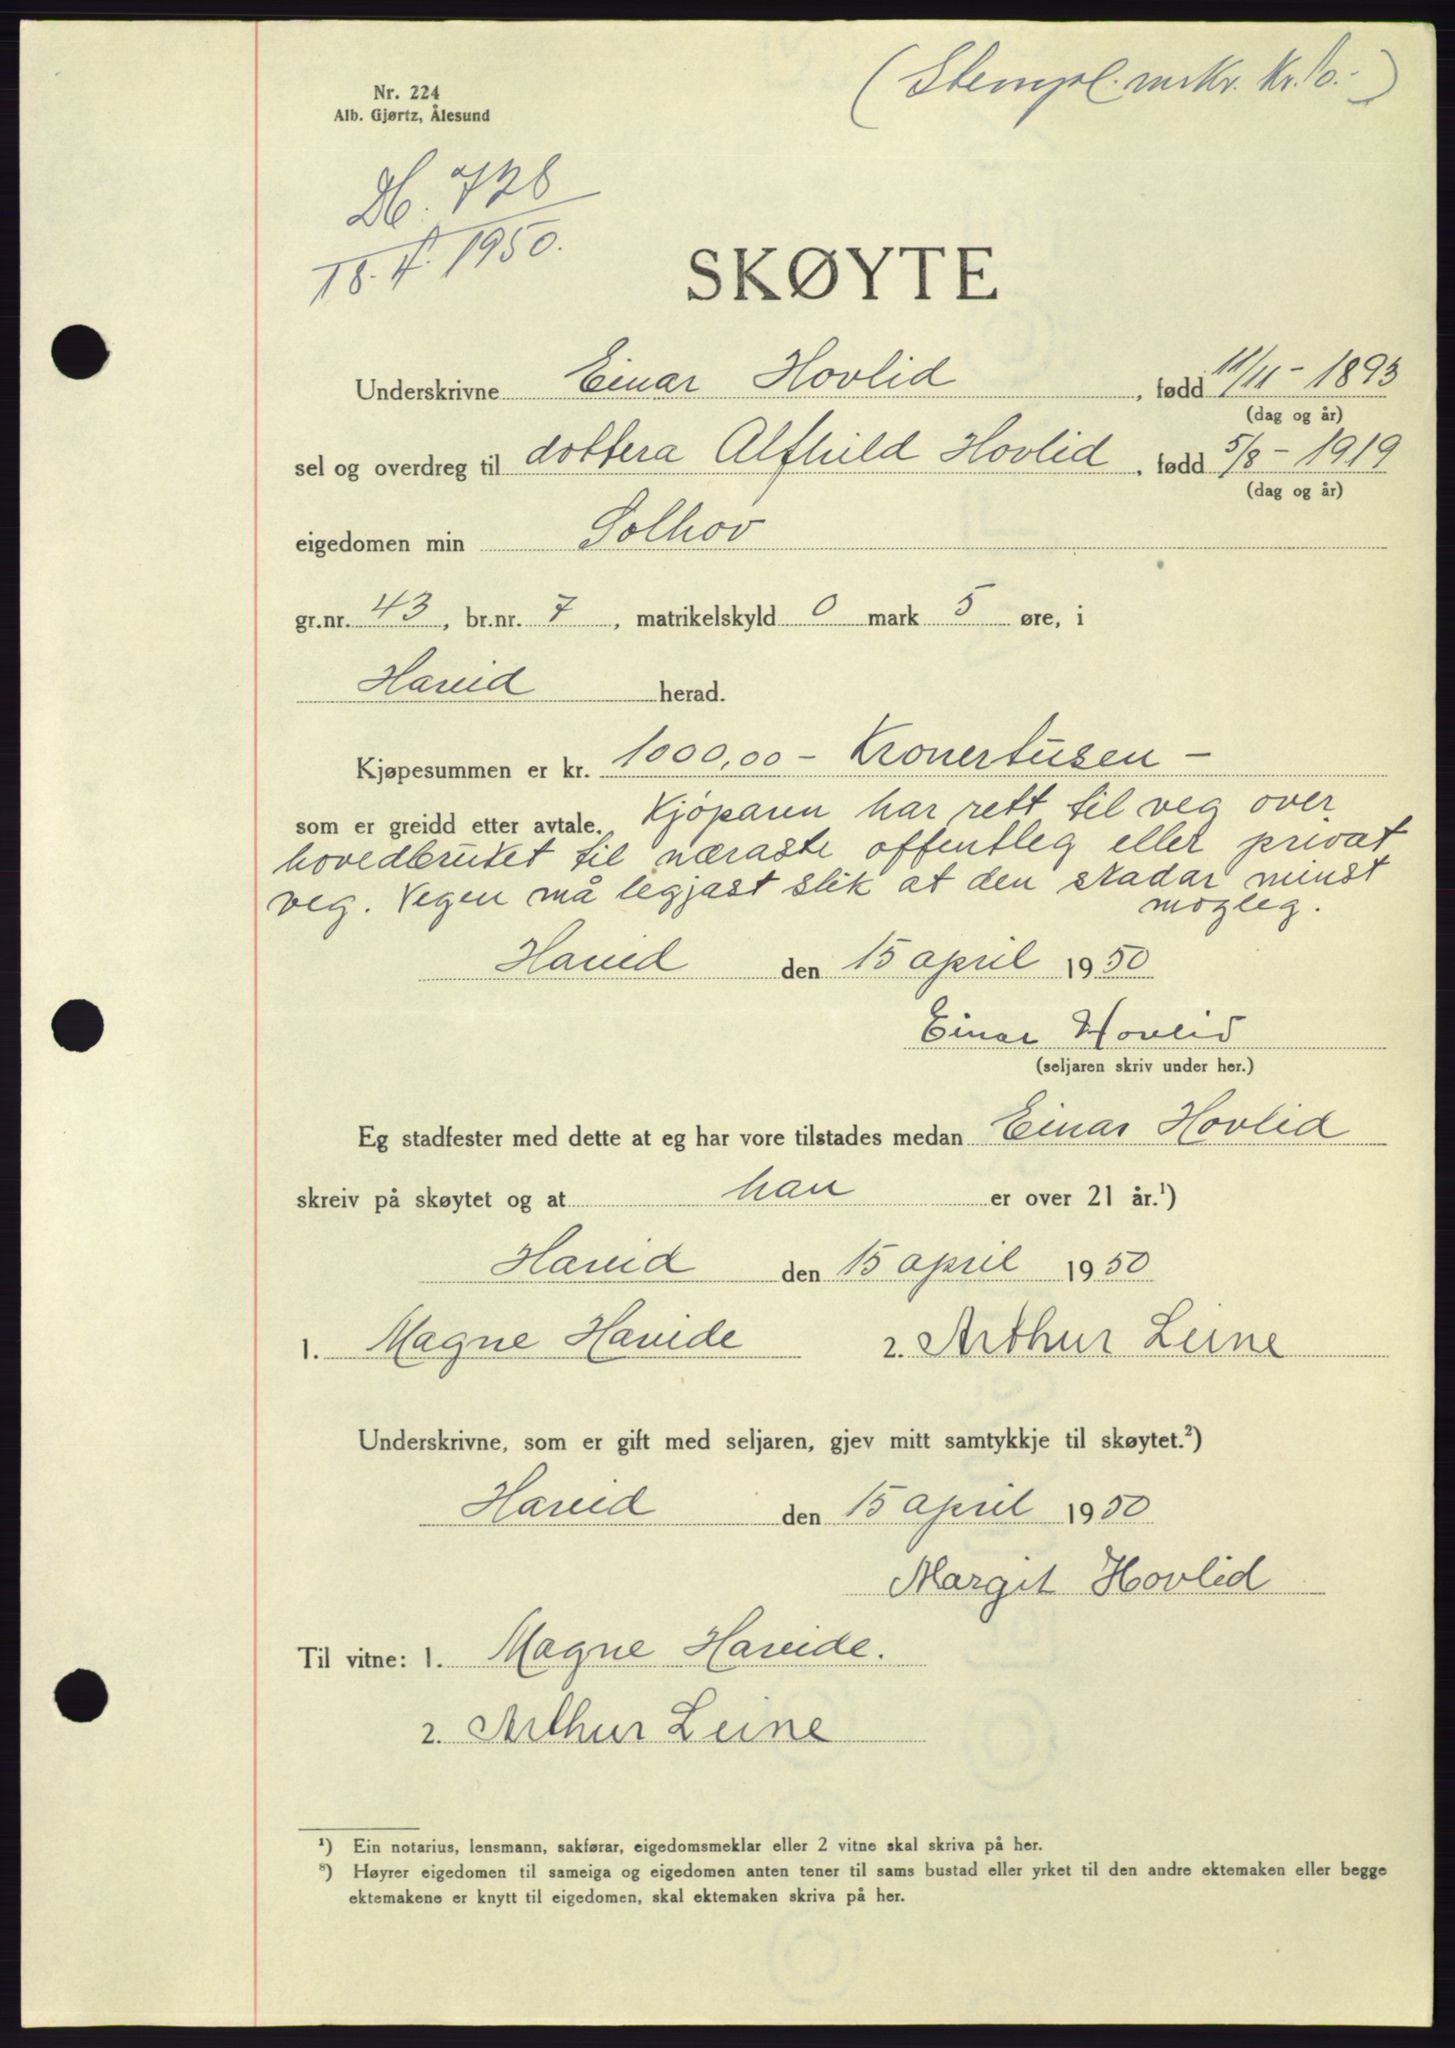 (Stempl. mrkr. kr. 10.-)
Nr. 224
Alb. Gjørtz, Ålesund
Db. 728
18.4.1950.
SKØYTE
Underskrivne Einar Hovlid, fødd 11/11 - 1893
(dag og år)
sel og overdreg til dottera Alfhild Hovlid, fødd 5/8 - 1919
(dag og år)
eigedomen min Solhov
gr.nr. 43, br.nr. 7, matrikelskyld 0 mark 5 øre, i
Hareid herad.
Kjøpesummen er kr. 1000,00 - Kronertusen -
som er greidd etter avtale. Kjøparen har rett til veg over
hovedbruket til næraste offentleg eller privat
veg. Vegen må leggjast slik at den skadar minst
mogleg.
Hareid den 15 april 1950
Einar Hovlid
(seljaren skriv under her.)
Eg stadfester med dette at eg har vore tilstades medan Einar Hovlid
skreiv på skøytet og at han er over 21 år.¹)
Hareid den 15 april 1950
1. Magne Hareide 2. Arthur Leine
Underskrivne, som er gift med seljaren, gjev mitt samtykkje til skøytet.²)
Hareid den 15 april 1950
Margit Hovlid
Til vitne: 1. Magne Hareide.
2. Arthur Leine
¹) Ein notarius, lensmann, sakførar, eigedomsmeklar eller 2 vitne skal skriva på her.
²) Høyrer eigedomen til sameiga og eigedomen anten tener til sams bustad eller yrket til den andre ektemaken eller begge
ektemakene er knytt til eigedomen, skal ektemaken skriva på her.